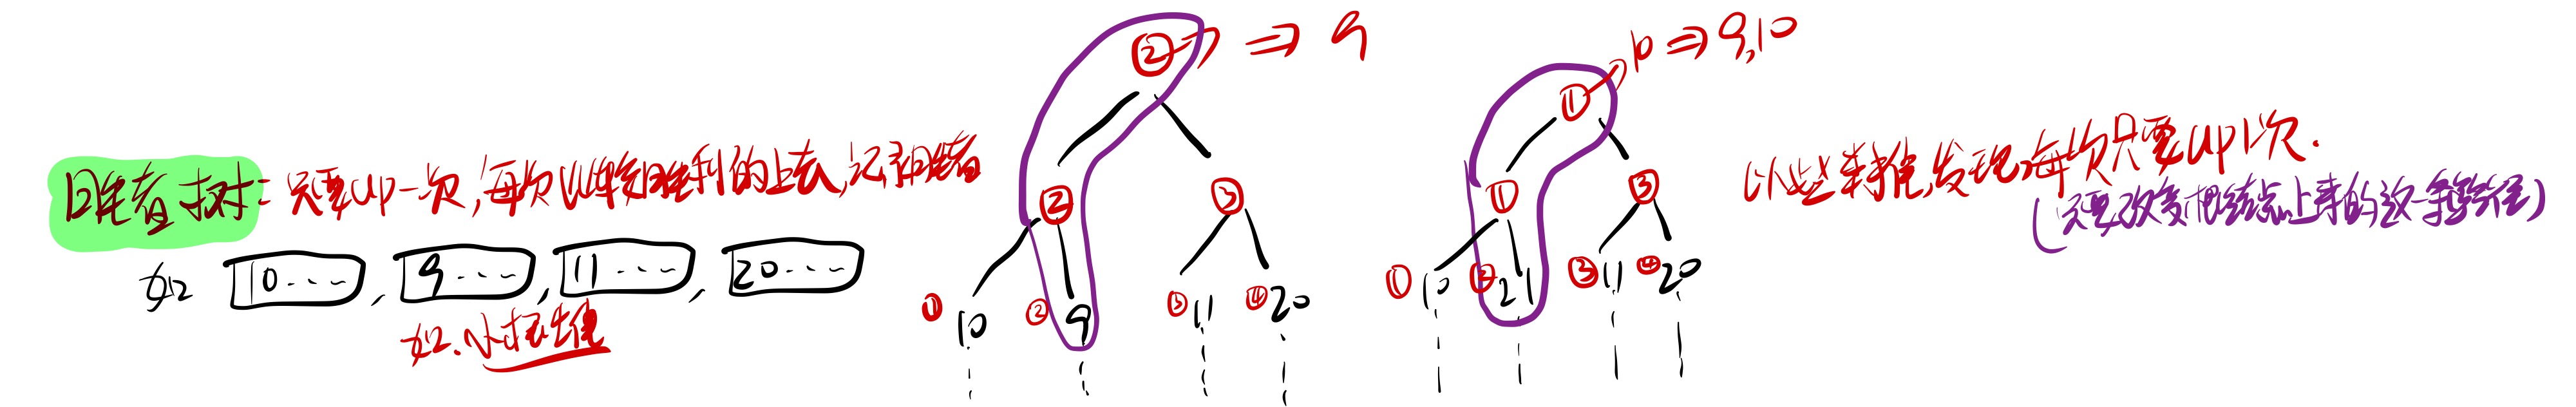 胜者树: 只要up一次,每次比较胜利的上去,记录胜者
如 10..., 9..., 11..., 20...
如.小根堆
② ⇒ 9
② ③
① 10 ② 9 ③ 11 ④ 20
① 10 ⇒ 9,10
① ③
① 10 ② 21 ③ 11 ④ 20
以此类推,发现每次只要up1次.
(只要改变根结点上来的这一条路径)